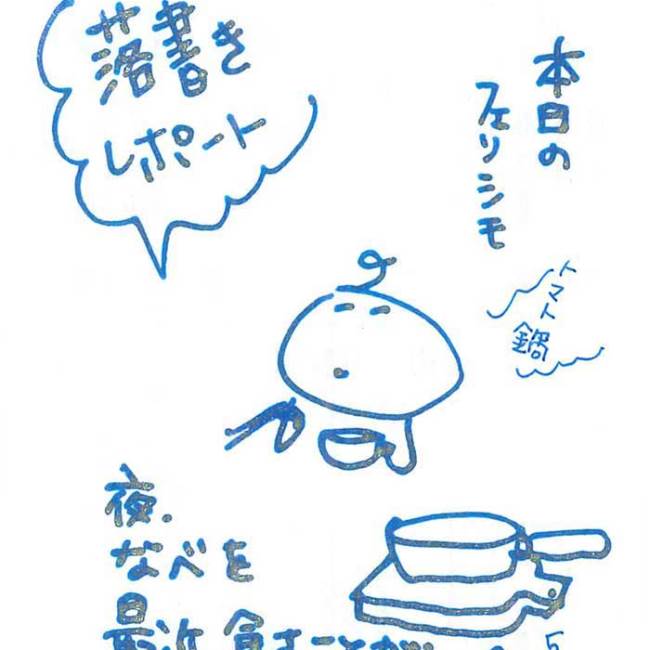 落書き
レポート
本日の
フェリシモ
トマト
鍋
夜.
なべを
最近食すことが